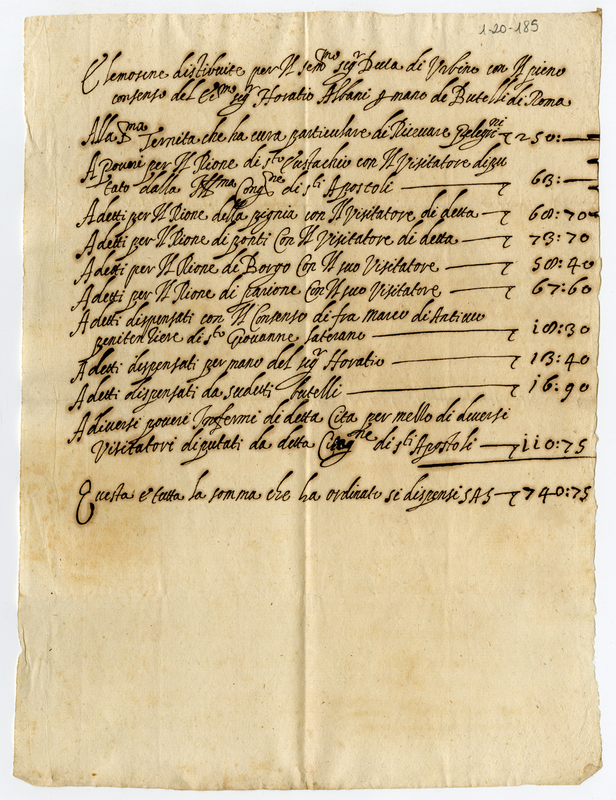 1-20-185
Elemosine distibuite per Il ser.mo sig.r Duca di Urbino con Il pieno
consenso del Ecc.mo sig.r Horatio Albani p mano de Butelli di Roma
Alla S.ma Ternita che ha cura particulare di Ricevare Pelegrini 250:—
A poveri per Il Rione di s.to Eustachio con Il Visitatore dipu
tato dalla Ill.ma Cong.ne di s.ti Apostoli — 63:—
A detti per Il Rione della pignia con Il Visitatore di detta — 68:70
A detti per Il Rione di ponti Con Il Visitatore di detta — 73:70
A detti per Il Rione di Borgo Con Il suo Visitatore — 58:40
A detti per Il Rione di parione Con Il suo Visitatore — 67:60
A detti dispensati con Il Consenso di fra Marco di Antiveo
penitentiere di s.to Giovanne Laterano — 18:30
A detti dispensati per mano del sig.r Horatio — 13:40
A detti dispensati da sudetti futelli — 16:90
A diversi poveri Infermi di detta Cita per mello di diversi
Visitatori diputati da detta Cong.ne di s.ti Apostoli — 110:75
Questa è tutta la somma che ha ordinato si dispensi SA S — 740:75